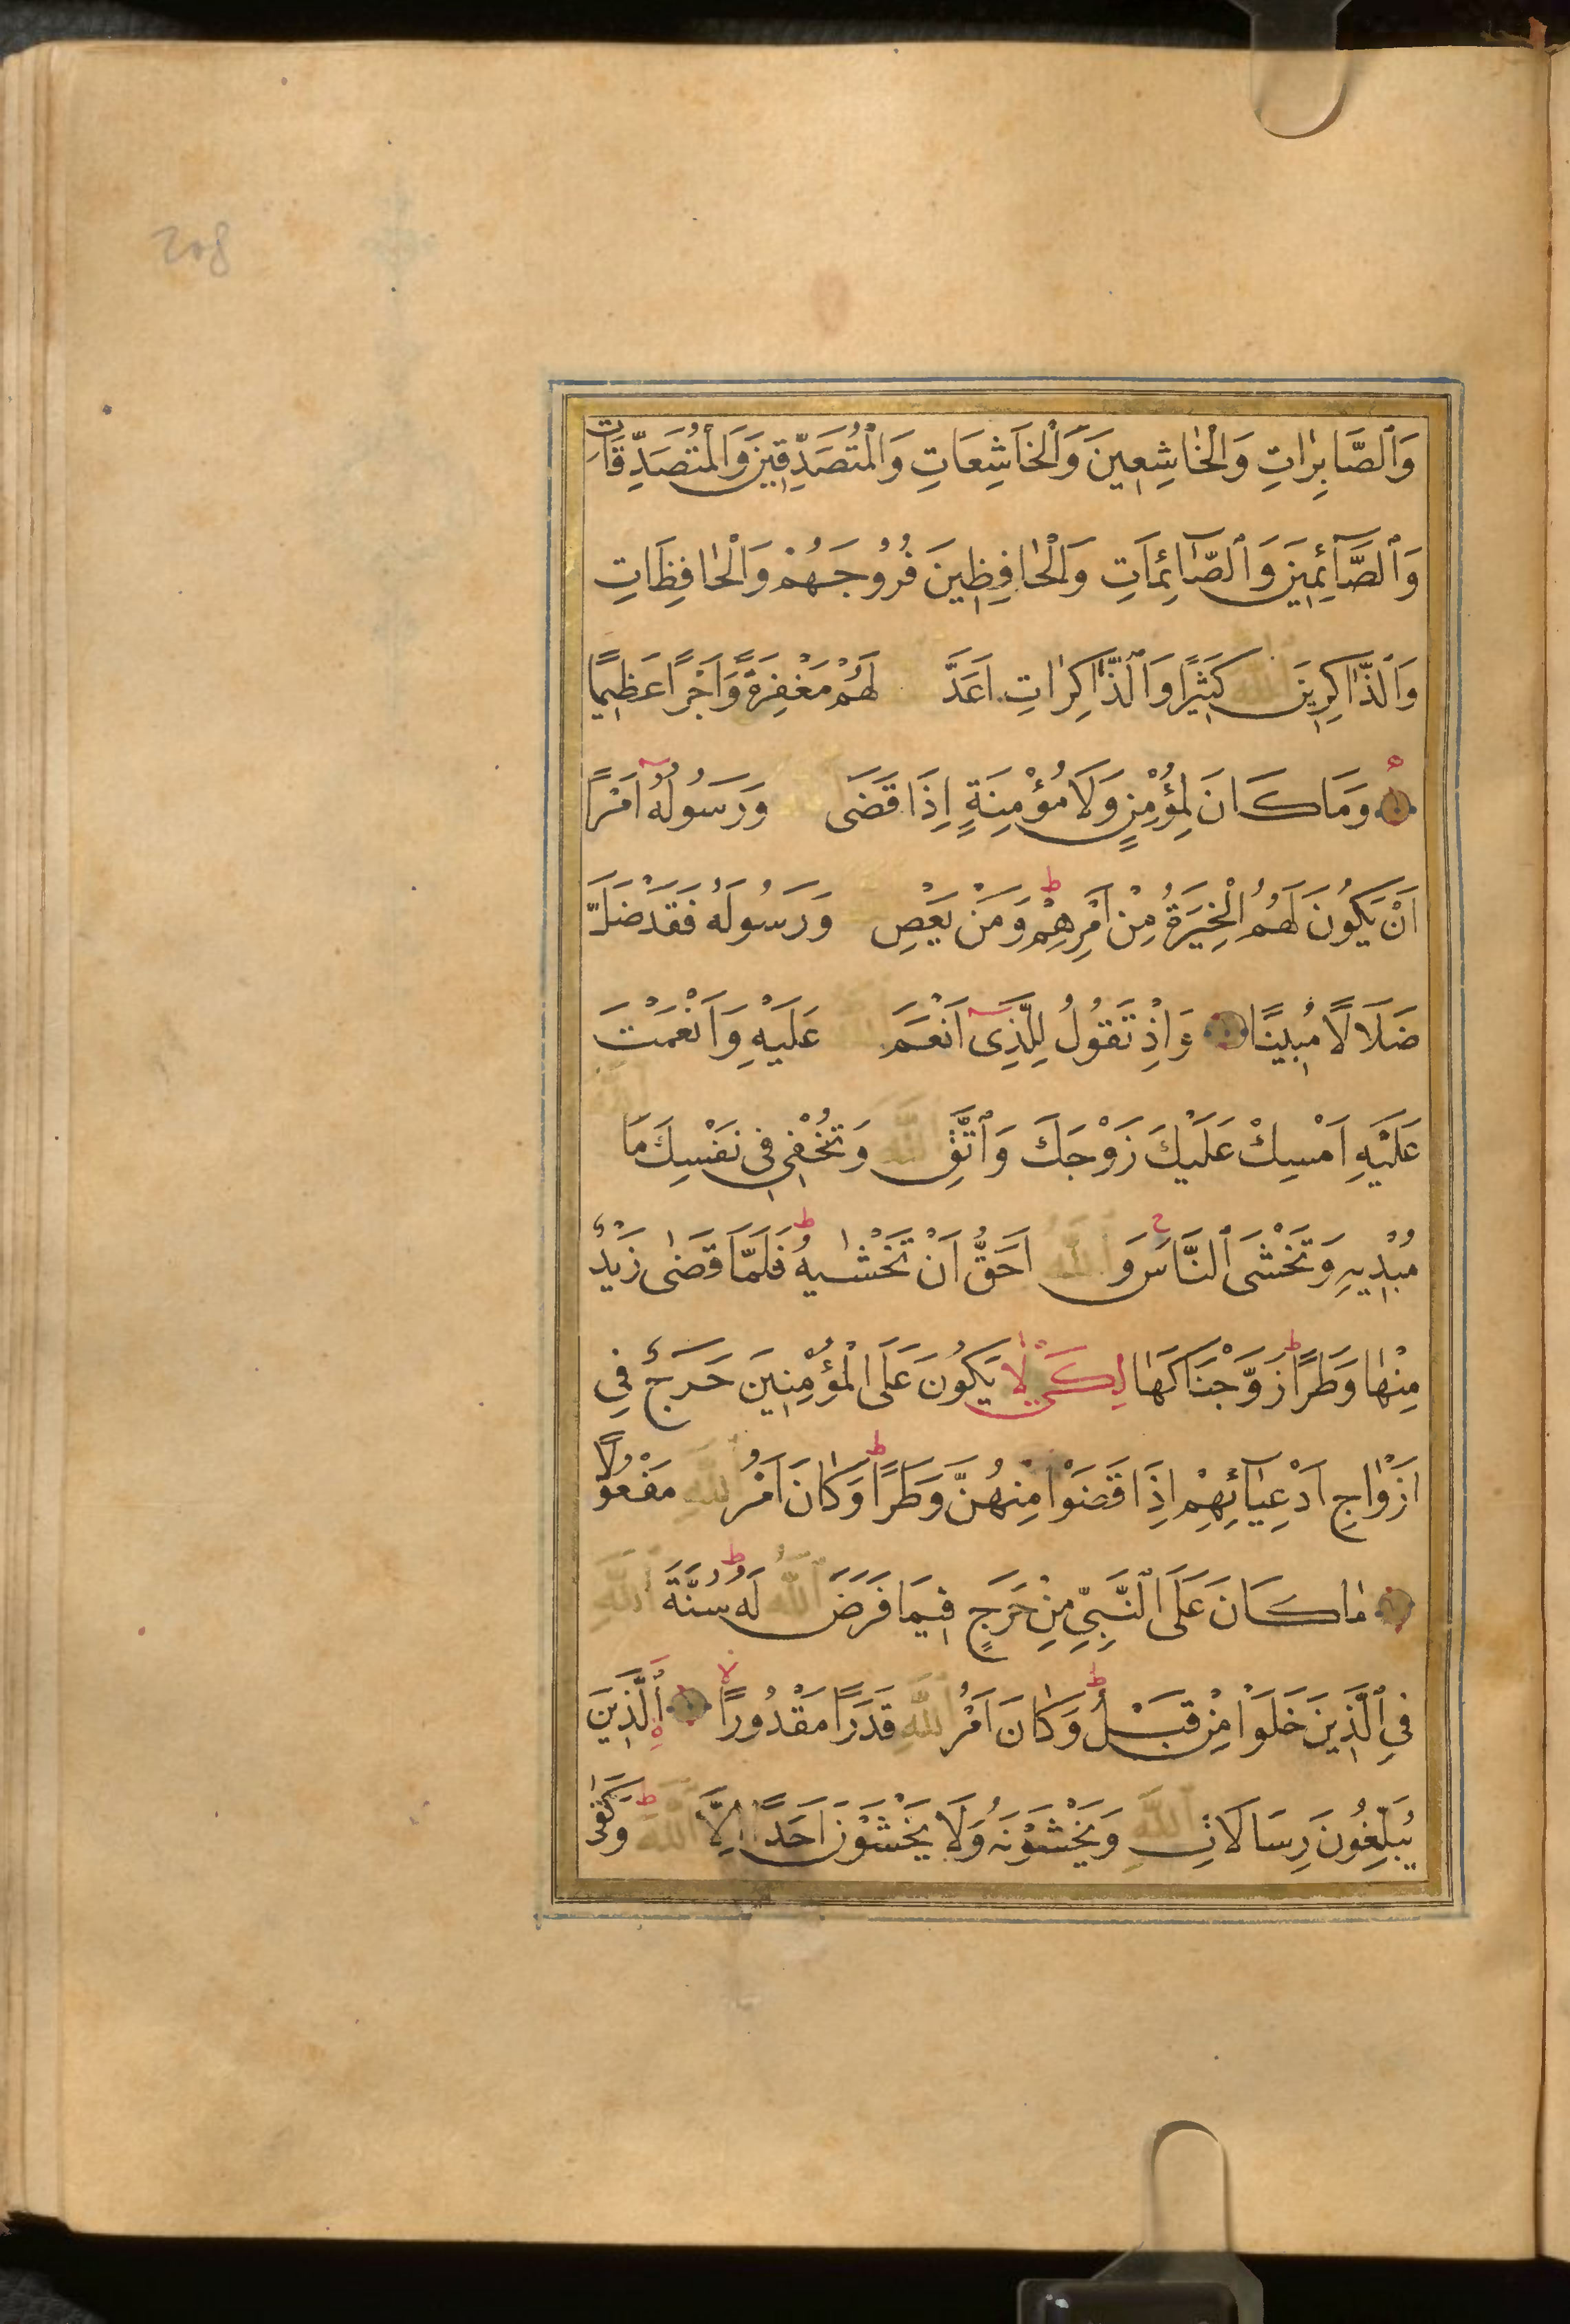 وَٱلصَّابِرٰاتِ وَالْخٰاشِعِينَ وَٱلْخَاشِعَاتِ وَالْمُتَصَدِّقِينَ وَالْمُتَصَدِّقَاتِ
وَٱلصَّآئِمِينَ وَٱلصَّآئِمَاتِ وَالْحٰافِظِينَ فُرُوجَهُمْ وَالْحٰافِظَاتِ
وَٱلذَّاكِرِينَ ٱللَّهَ كَثِيرًا وَٱلذَّاكِرٰاتِ اَعَدَّ لَهُمْ مَغْفِرَةً وَاَجْرًا عَظِيمًا
وَمَا كَانَ لِمُؤْمِنٍ وَلَا مُؤْمِنَةٍ اِذَا قَضَى ٱللَّهُ وَرَسُولُهُ اَمْرًا
اَنْ يَكُونَ لَهُمُ الْخِيَرَةُ مِنْ اَمْرِهِمْ ط وَمَنْ يَعْصِ ٱللَّهَ وَرَسُولَهُ فَقَدْ ضَلَّ
ضَلَالًا مُبِينًا وَاِذْ تَقُولُ لِلَّذِى اَنْعَمَ ٱللَّهُ عَلَيْهِ وَاَنْعَمْتَ
عَلَيْهِ اَمْسِكْ عَلَيْكَ زَوْجَكَ وَٱتَّقِ ٱللَّهَ وَتُخْفِى فِى نَفْسِكَ مَا ٱللَّهُ
مُبْدِيهِ وَتَخْشَى ٱلنَّاسَ ج وَٱللَّهُ اَحَقُّ اَنْ تَخْشٰيهُ ط فَلَمَّا قَضٰى زَيْدٌ
مِنْهٰا وَطَرًا ط زَوَّجْنَاكَهٰا لِكَىْ لٰا يَكُونَ عَلَى الْمُؤْمِنِينَ حَرَجٌ فِى
اَزْوٰاجِ اَدْعِيٰآئِهِمْ اِذَا قَضَوْا مِنْهُنَّ وَطَرًا ط وَكٰانَ اَمْرُ ٱللَّهِ مَفْعُولًا
مٰا كَانَ عَلَى ٱلنَّبِىِّ مِنْ حَرَجٍ فِيمَا فَرَضَ ٱللَّهُ لَهُ ط سُنَّةَ ٱللَّهِ
فِى ٱلَّذِينَ خَلَوْا مِنْ قَبْلُ ط وَكٰانَ اَمْرُ ٱللَّهِ قَدَرًا مَقْدُورًا لا ٱلَّذِينَ
يُبَلِّغُونَ رِسَالَاتِ ٱللَّهِ وَيَخْشَوْنَهُ وَلَا يَخْشَوْنَ اَحَدًا اِلَّا ٱللَّهَ ط وَكَفٰى